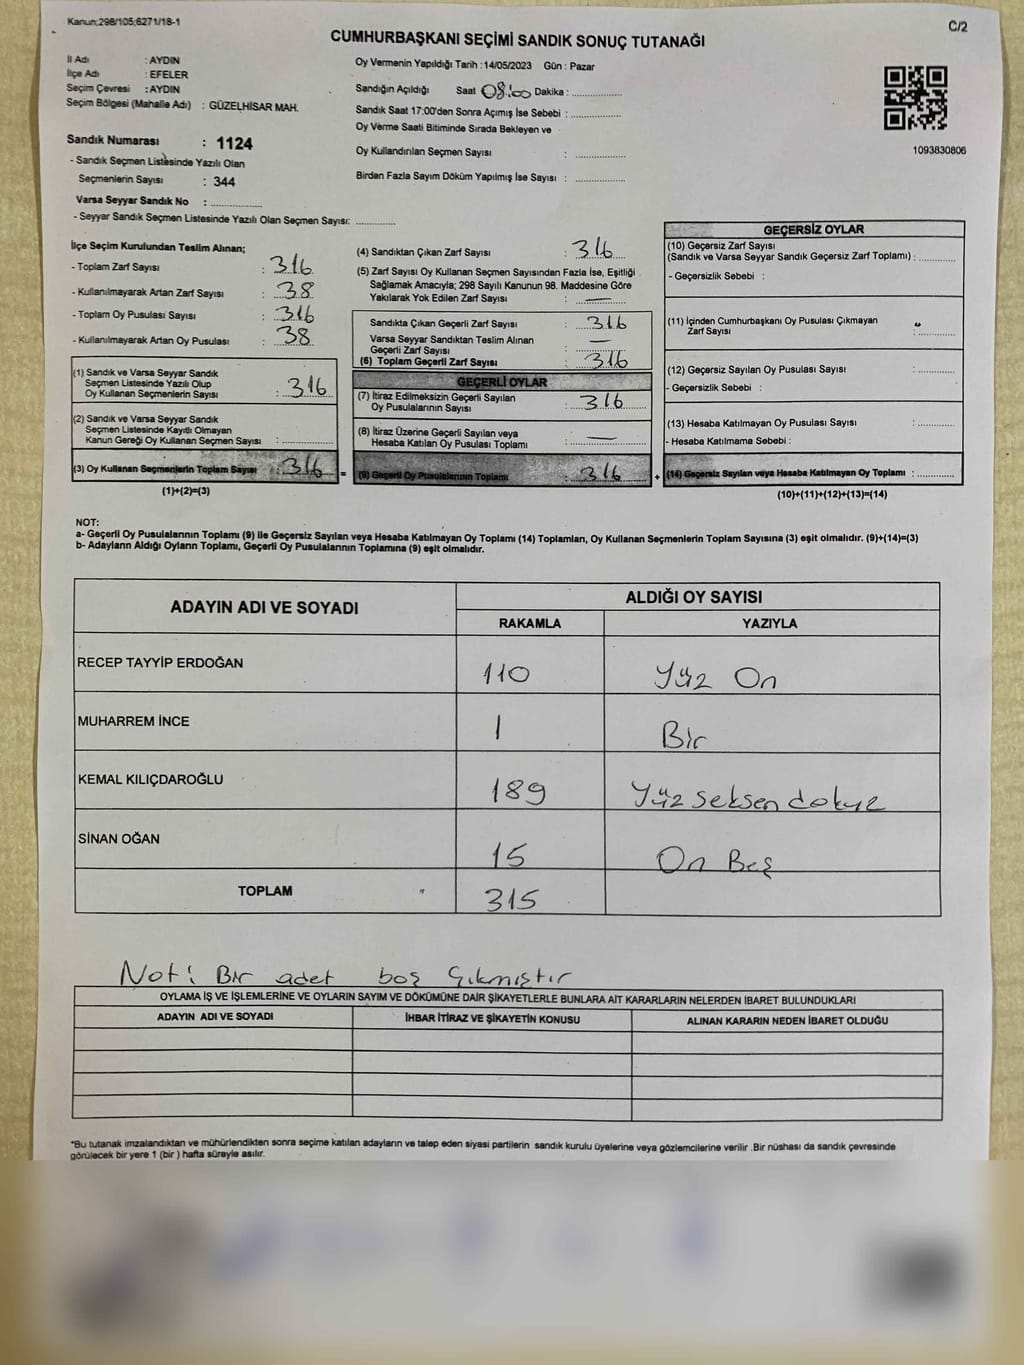 Kanun;298/105;6271/18-1
C/2
CUMHURBAŞKANI SEÇİMİ SANDIK SONUÇ TUTANAĞI
İl Adı : AYDIN
İlçe Adı : EFELER
Seçim Çevresi : AYDIN
Seçim Bölgesi (Mahalle Adı) : GÜZELHİSAR MAH.
Sandık Numarası : 1124
- Sandık Seçmen Listesinde Yazılı Olan
Seçmenlerin Sayısı : 344
Varsa Seyyar Sandık No : ...............
- Seyyar Sandık Seçmen Listesinde Yazılı Olan Seçmen Sayısı: ............
Oy Vermenin Yapıldığı Tarih : 14/05/2023 Gün : Pazar
Sandığın Açıldığı Saat 08:00 Dakika : ...............
Sandık Saat 17:00'den Sonra Açımış İse Sebebi : ...............
Oy Verme Saati Bitiminde Sırada Bekleyen ve
Oy Kullandırılan Seçmen Sayısı : ...............
Birden Fazla Sayım Döküm Yapılmış İse Sayısı : ...............
1093830806
İlçe Seçim Kurulundan Teslim Alınan;
- Toplam Zarf Sayısı : 316
- Kullanılmayarak Artan Zarf Sayısı : 38
- Toplam Oy Pusulası Sayısı : 316
- Kullanılmayarak Artan Oy Pusulası : 38
(1) Sandık ve Varsa Seyyar Sandık
Seçmen Listesinde Yazılı Olup
Oy Kullanan Seçmenlerin Sayısı : 316
(2) Sandık ve Varsa Seyyar Sandık
Seçmen Listesinde Kayıtlı Olmayan
Kanun Gereği Oy Kullanan Seçmen Sayısı : ...............
(3) Oy Kullanan Seçmenlerin Toplam Sayısı : 316 =
(1)+(2)=(3)
(4) Sandıktan Çıkan Zarf Sayısı : 316
(5) Zarf Sayısı Oy Kullanan Seçmen Sayısından Fazla İse, Eşitliği
Sağlamak Amacıyla; 298 Sayılı Kanunun 98. Maddesine Göre
Yakılarak Yok Edilen Zarf Sayısı : —
Sandıkta Çıkan Geçerli Zarf Sayısı : 316
Varsa Seyyar Sandıktan Teslim Alınan
Geçerli Zarf Sayısı : —
(6) Toplam Geçerli Zarf Sayısı : 316
GEÇERLİ OYLAR
(7) İtiraz Edilmeksizin Geçerli Sayılan
Oy Pusulalarının Sayısı : 316
(8) İtiraz Üzerine Geçerli Sayılan veya
Hesaba Katılan Oy Pusulası Toplamı : —
(9) Geçerli Oy Pusulalarının Toplamı : 316 +
GEÇERSİZ OYLAR
(10) Geçersiz Zarf Sayısı
(Sandık ve Varsa Seyyar Sandık Geçersiz Zarf Toplamı) : ............
- Geçersizlik Sebebi :
(11) İçinden Cumhurbaşkanı Oy Pusulası Çıkmayan
Zarf Sayısı : ............
(12) Geçersiz Sayılan Oy Pusulası Sayısı : ............
- Geçersizlik Sebebi :
(13) Hesaba Katılmayan Oy Pusulası Sayısı : ............
- Hesaba Katılmama Sebebi :
(14) Geçersiz Sayılan veya Hesaba Katılmayan Oy Toplamı : ............
(10)+(11)+(12)+(13)=(14)
NOT:
a- Geçerli Oy Pusulalarının Toplamı (9) ile Geçersiz Sayılan veya Hesaba Katılmayan Oy Toplamı (14) Toplamları, Oy Kullanan Seçmenlerin Toplam Sayısına (3) eşit olmalıdır. (9)+(14)=(3)
b- Adayların Aldığı Oyların Toplamı, Geçerli Oy Pusulalarının Toplamına (9) eşit olmalıdır.
ADAYIN ADI VE SOYADI ALDIĞI OY SAYISI
RAKAMLA YAZIYLA
RECEP TAYYİP ERDOĞAN 110 Yüz On
MUHARREM İNCE 1 Bir
KEMAL KILIÇDAROĞLU 189 Yüz seksen dokuz
SİNAN OĞAN 15 On Beş
TOPLAM 315
Not: Bir adet boş çıkmıştır
OYLAMA İŞ VE İŞLEMLERİNE VE OYLARIN SAYIM VE DÖKÜMÜNE DAİR ŞİKAYETLERLE BUNLARA AİT KARARLARIN NELERDEN İBARET BULUNDUKLARI
ADAYIN ADI VE SOYADI İHBAR İTİRAZ VE ŞİKAYETİN KONUSU ALINAN KARARIN NEDEN İBARET OLDUĞU
*Bu tutanak imzalandıktan ve mühürlendikten sonra seçime katılan adayların ve talep eden siyasi partilerin sandık kurulu üyelerine veya gözlemcilerine verilir .Bir nüshası da sandık çevresinde
görülecek bir yere 1 (bir ) hafta süreyle asılır.